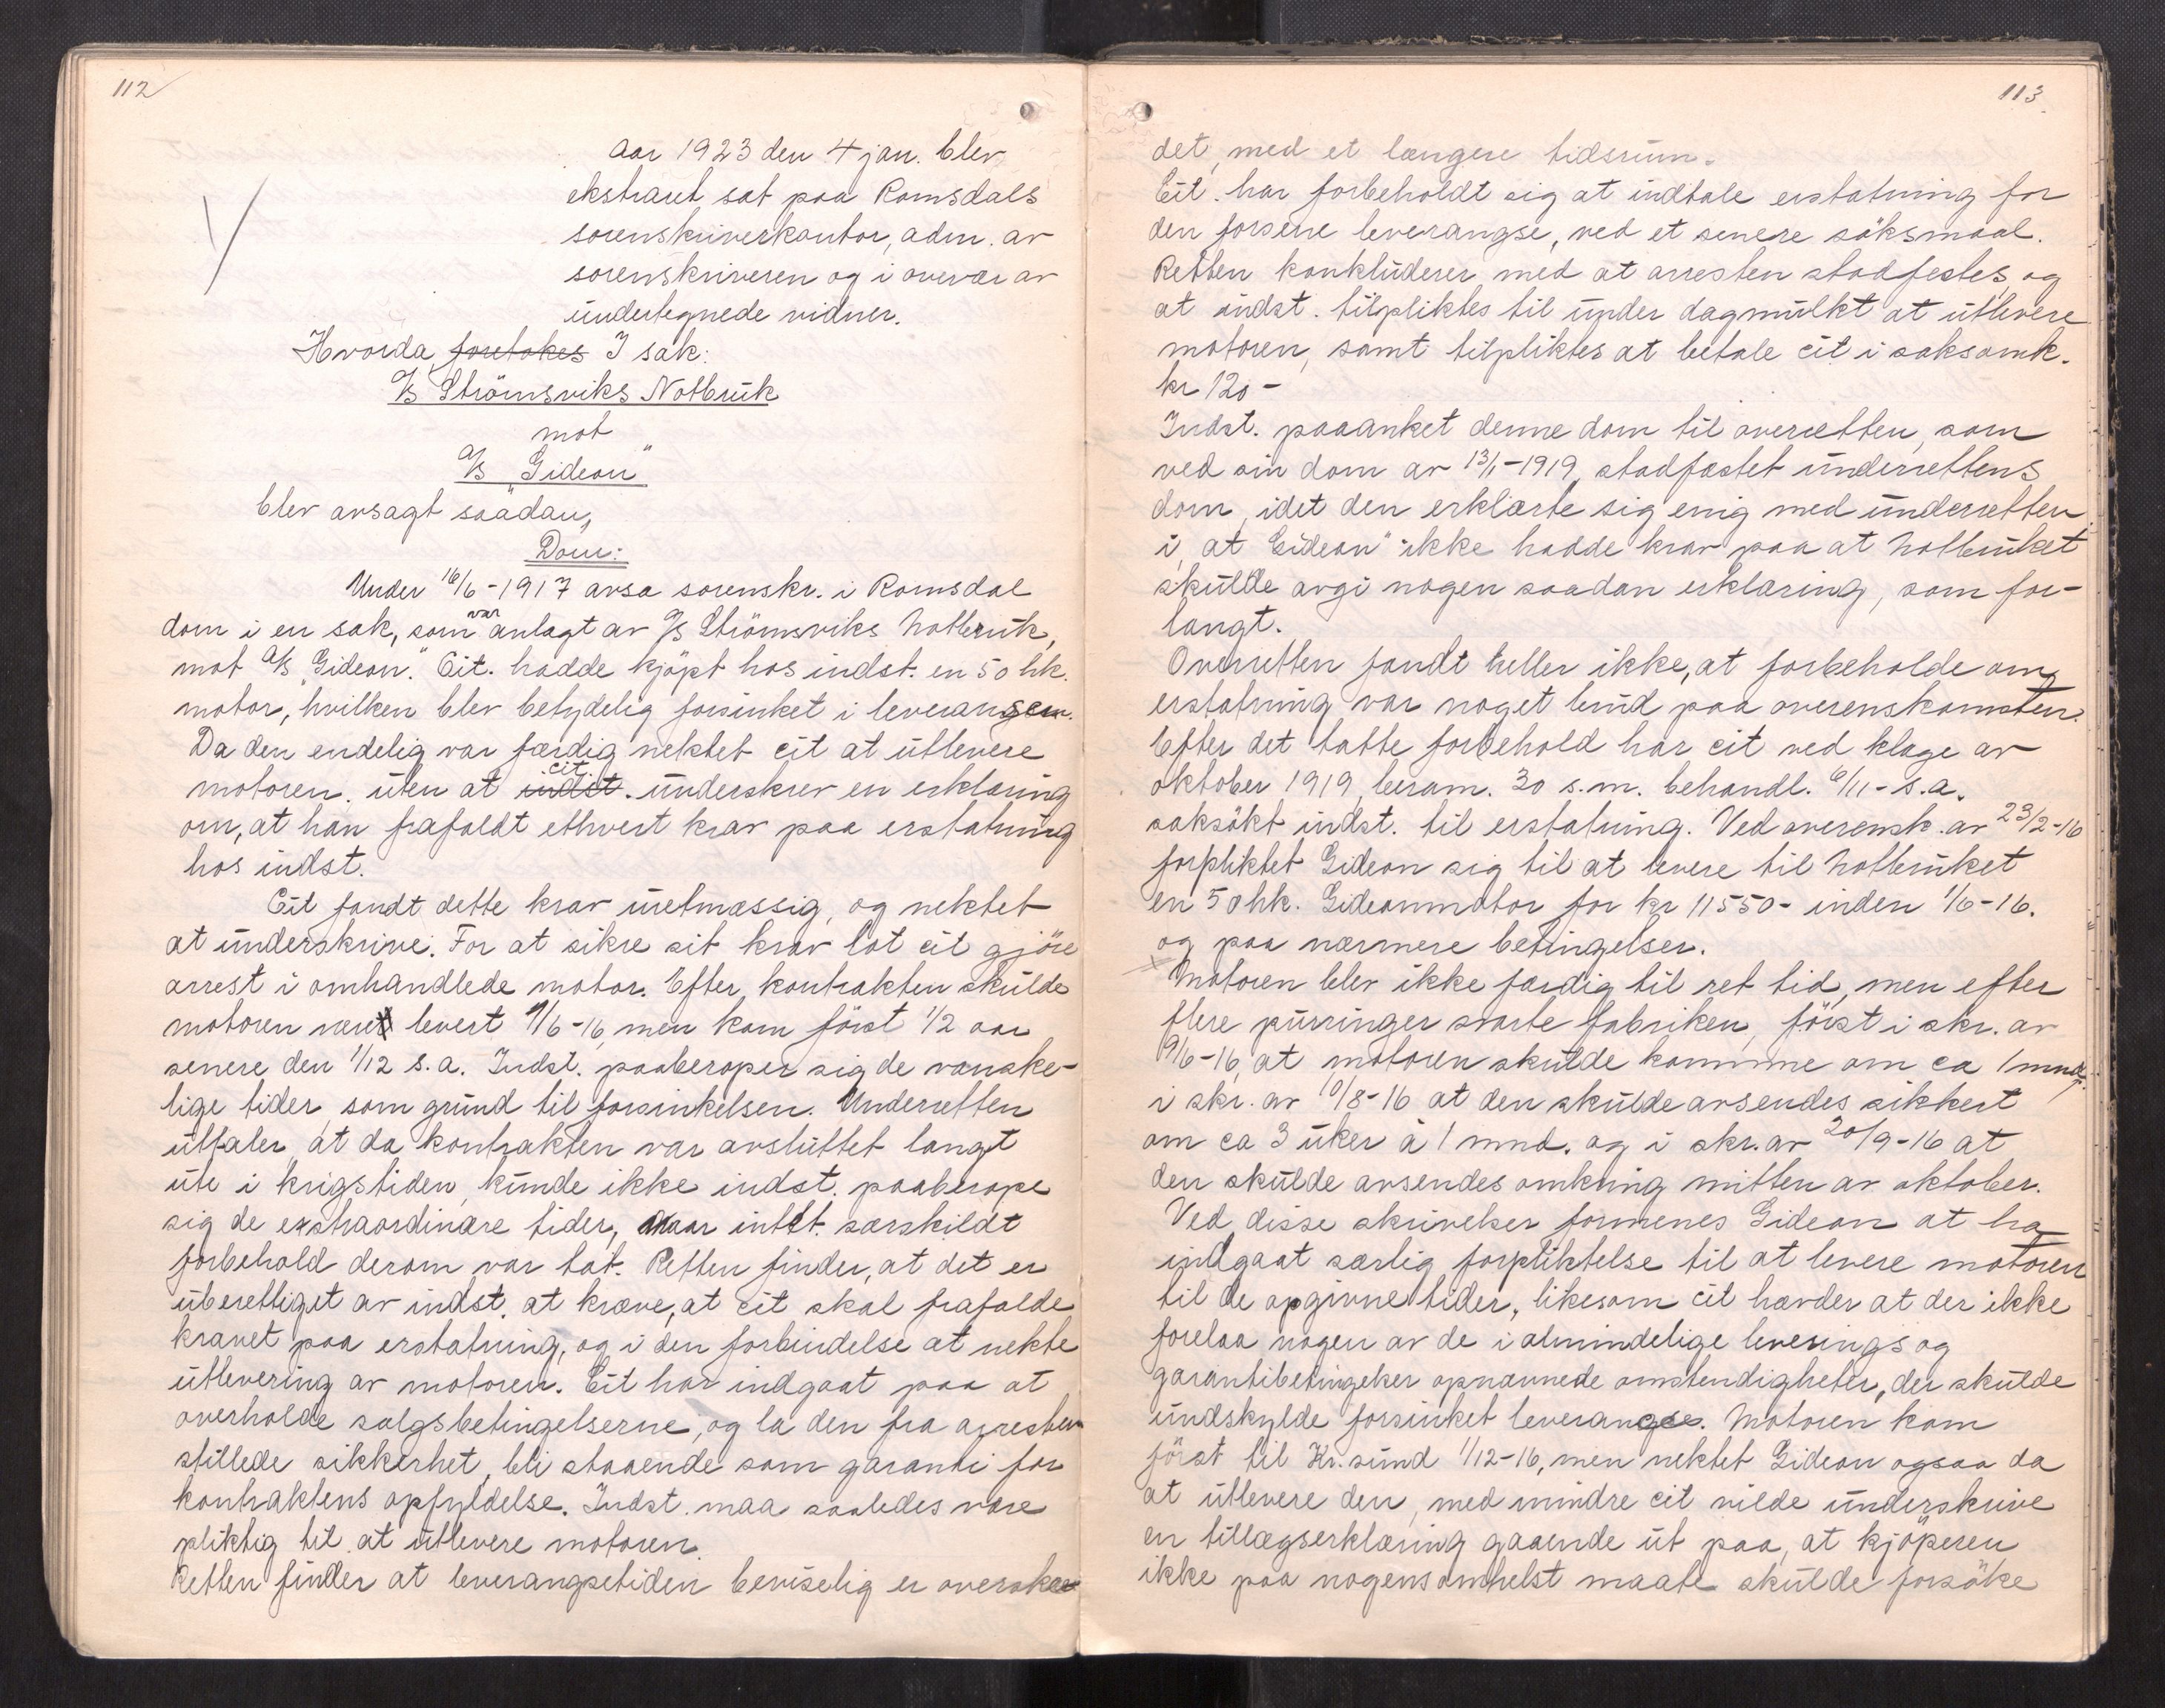 112
Aar 1923 den 4 jan. blev
ekstraret sat paa Romsdals
sorenskriverkontor, adm. av
sorenskriveren og i overvær av
undertegnede vidner.
Hvorda foretokes I sak:
A/S Strömsviks Notbruk
mot
A/S "Gideon"
blev avsagt saadan,
Dom:
Under 16/6-1917 avsa sorenskr. i Romsdal
dom i en sak, som var anlagt av A/S Strömsviks Notbruk,
mot A/S "Gideon." Cit. hadde kjöpt hos indst. en 50 hk.
motor, hvilken blev betydelig forsinket i leverangsen.
Da den endelig var færdig nektet cit at utlevere
motoren. uten at indst. cit. underskrev en erklæring
om, at han frafaldt ethvert krav paa erstatning
hos indst.
Cit fandt dette krav uretmæssig, og nektet
at underskrive. For at sikre sit krav lot cit gjöre
arrest i omhandlede motor. Efter kontrakten skulde
motoren været levert 1/6-16, men kom först 1/2 aar
senere den 1/12 s.a. Indst. paaberoper sig de vanske-
lige tider, som grund til forsinkelsen. Underretten
uttaler, at da kontrakten var avsluttet langt
ute i krigstiden, kunde ikke indst. paaberope
sig de exstraordinære tider, naar intet særskildt
forbehold derom var tat. Retten finder, at det er
uberettiget av indst. at kræve, at cit skal frafalde
kravet paa erstatning, og i den forbindelse at nekte
utlevering av motoren. Cit har indgaat paa at
overholde salgsbetingelserne, og la den fra arresten
stillede sikkerhet, bli staaende som garanti for
kontraktens opfyldelse. Indst. maa saaledes være
pliktig til at utlevere motoren.
Retten finder at leverangsetiden beviselig er overskre
113
det, med et længere tidsrum.
Cit. har forbeholdt sig at indtale erstatning for
den forsene leverangse, ved et senere söksmaal.
Retten konkluderer med at arresten stadfestes, og
at indst. tilpliktes til under dagmulkt at utlevere
motoren, samt tilpliktes at betale cit i saksomk.
kr 120-
Indst. paaanket denne dom til overretten, som
ved sin dom av 13/1-1919, stadfæstet underrettens
dom, idet den erklærte sig enig med underretten
i, at Gideon" ikke hadde krav paa at Notbruket
skulde avgi nogen saadan erklæring, som for-
langt.
Overretten fandt heller ikke, at forbeholde om
erstatning var noget brud paa overenskomsten.
Efter det tatte forbehold har cit ved klage av
oktober 1919, beram. 30 s.m. behandl. 6/11-s.a.
saksökt indst. til erstatning. Ved overensk. av 23/2-16
forpliktet Gideon sig til at levere til Notbruket
en 50 hk. Gideonmotor for kr 11550- inden 1/6-16.
og paa nærmere betingelser.
Motoren blev ikke færdig til ret tid, men efter
flere purringer svarte fabriken, först i skr. av
19/6-16, at motoren skulde komme om ca 1 mnd,
i skr. av 10/8-16 at den skulde avsendes sikkert
om ca 3 uker à 1 mnd. og i skr. av 20/9-16 at
den skulde avsendes omkring mitten av oktober.
Ved disse skrivelser formenes Gideon at ha
indgaat særlig forpliktelse til at levere motoren
til de opgivne tider, likesom cit hævder at der ikke
forelaa nogen av de i almindelige leverings og
garantibetingelser opnævnede omstendigheter, der skulde
undskylde forsinket leverangse. Motoren kom
först til Kr.sund 1/12-16, men nektet Gideon ogsaa da
at utlevere den, med mindre cit vilde underskrive
en tillægserklæring gaaende ut paa, at kjöperen
ikke paa nogensomhelst maate skulde forsöke